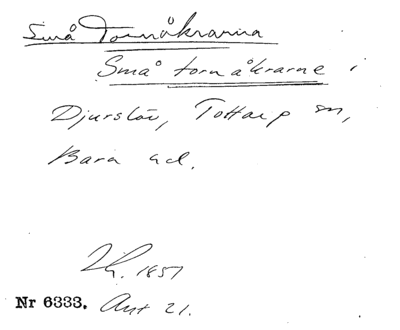 Små Tornåkrarna
Små tornåkrarne i
Djurslöv, Tottarp sn,
Bara hd.
LG. 1851
Nr 6333. Avt 21.